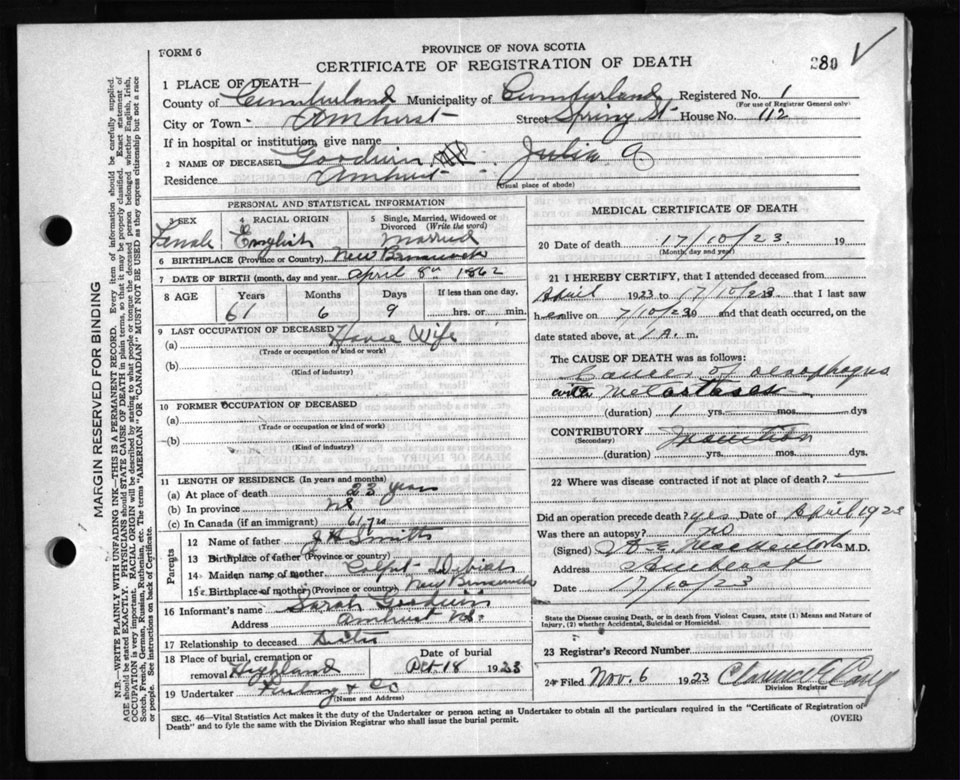 FORM 6
PROVINCE OF NOVA SCOTIA
CERTIFICATE OF REGISTRATION OF DEATH
380
1 PLACE OF DEATH—
County of Cumberland Municipality of Cumberland Registered No. 1
(For use of Registrar General only)
City or Town Amherst Street Spring St House No. 112
If in hospital or institution, give name
2 NAME OF DECEASED Goodwin Julia A
Residence Amherst
(Usual place of abode)
PERSONAL AND STATISTICAL INFORMATION
3 SEX
Female
4 RACIAL ORIGIN
English
5 Single, Married, Widowed or Divorced (Write the word)
Married
6 BIRTHPLACE (Province or Country) New Brunswick
7 DATE OF BIRTH (month, day and year) April 8th 1862
8 AGE Years Months Days If less than one day,
61 6 9 hrs. or min.
9 LAST OCCUPATION OF DECEASED
(a) House Wife
(Trade or occupation or kind or work)
(b)
(Kind of industry)
10 FORMER OCCUPATION OF DECEASED
(a)
(Trade or occupation or kind of work)
(b)
(Kind of industry)
11 LENGTH OF RESIDENCE (In years and months)
(a) At place of death 23 years
(b) In province NS
(c) In Canada (if an immigrant) 61 yrs
Parents
12 Name of father J H Smith
13 Birthplace of father (Province or country)
14 Maiden name of mother
15 Birthplace of mother (Province or country) New Brunswick
16 Informant's name Sarah Goodwin
Address Amherst NS.
17 Relationship to deceased Sister
18 Place of burial, cremation or removal Highland
Date of burial Oct 18 1923
19 Undertaker & Co
(Name and Address)
MEDICAL CERTIFICATE OF DEATH
20 Date of death 17/10/23. 19
(Month, day and year)
21 I HEREBY CERTIFY, that I attended deceased from
April 1923 to 17/10/23 that I last saw
her alive on 7/10/23 and that death occurred, on the
date stated above, at 1 A. m.
The CAUSE OF DEATH was as follows:
Cancer of Oesophagus
with Metastases
(duration) 1 yrs. mos. dys
CONTRIBUTORY Inanition
(Secondary)
(duration) yrs. mos. dys.
22 Where was disease contracted if not at place of death?
Did an operation precede death? yes Date of April 1923
Was there an autopsy? no
(Signed) M.D.
Address Amherst
Date 17/10/23
State the Disease causing Death, or in death from Violent Causes, state (1) Means and Nature of Injury, (2) whether Accidental, Suicidal or Homicidal.
23 Registrar's Record Number
24 Filed Nov. 6 1923
Division Registrar
SEC. 46—Vital Statistics Act makes it the duty of the Undertaker or person acting as Undertaker to obtain all the particulars required in the "Certificate of Registration of
Death" and to fyle the same with the Division Registrar who shall issue the burial permit.
(OVER)
MARGIN RESERVED FOR BINDING
N.B.—WRITE PLAINLY WITH UNFADING INK—THIS IS A PERMANENT RECORD. Every item of information should be carefully supplied.
AGE should be stated EXACTLY. PHYSICIANS should STATE CAUSE OF DEATH in plain terms, so that it may be properly classified. Exact statement of
OCCUPATION is very important. RACIAL ORIGIN will be described by stating to what people or tongue the deceased person belonged whether English, Irish,
Scotch, French, German, Russian, Ruthenian, etc. The terms "AMERICAN" or "CANADIAN" MUST NOT BE USED as they express citizenship but not a race
or people. See instructions on back of Certificate.